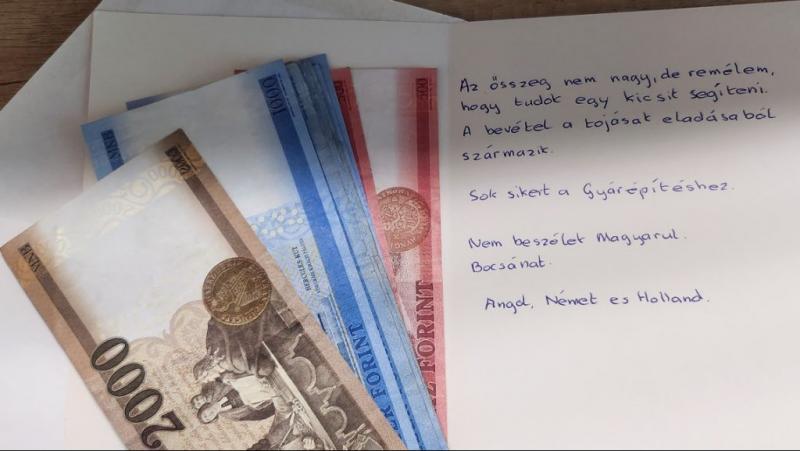 Az összeg nem nagy, de remélem,
hogy tudok egy kicsit segíteni.
A bevétel a tojásat eladásaból
származik.
Sok sikert a Gyárépítéshez.
Nem beszélet Magyarul.
Bocsánat.
Angol, Német es Holland.
2000
MNB
2000
1000
MNB
HERCULES KÚT
FORINT
FORINT